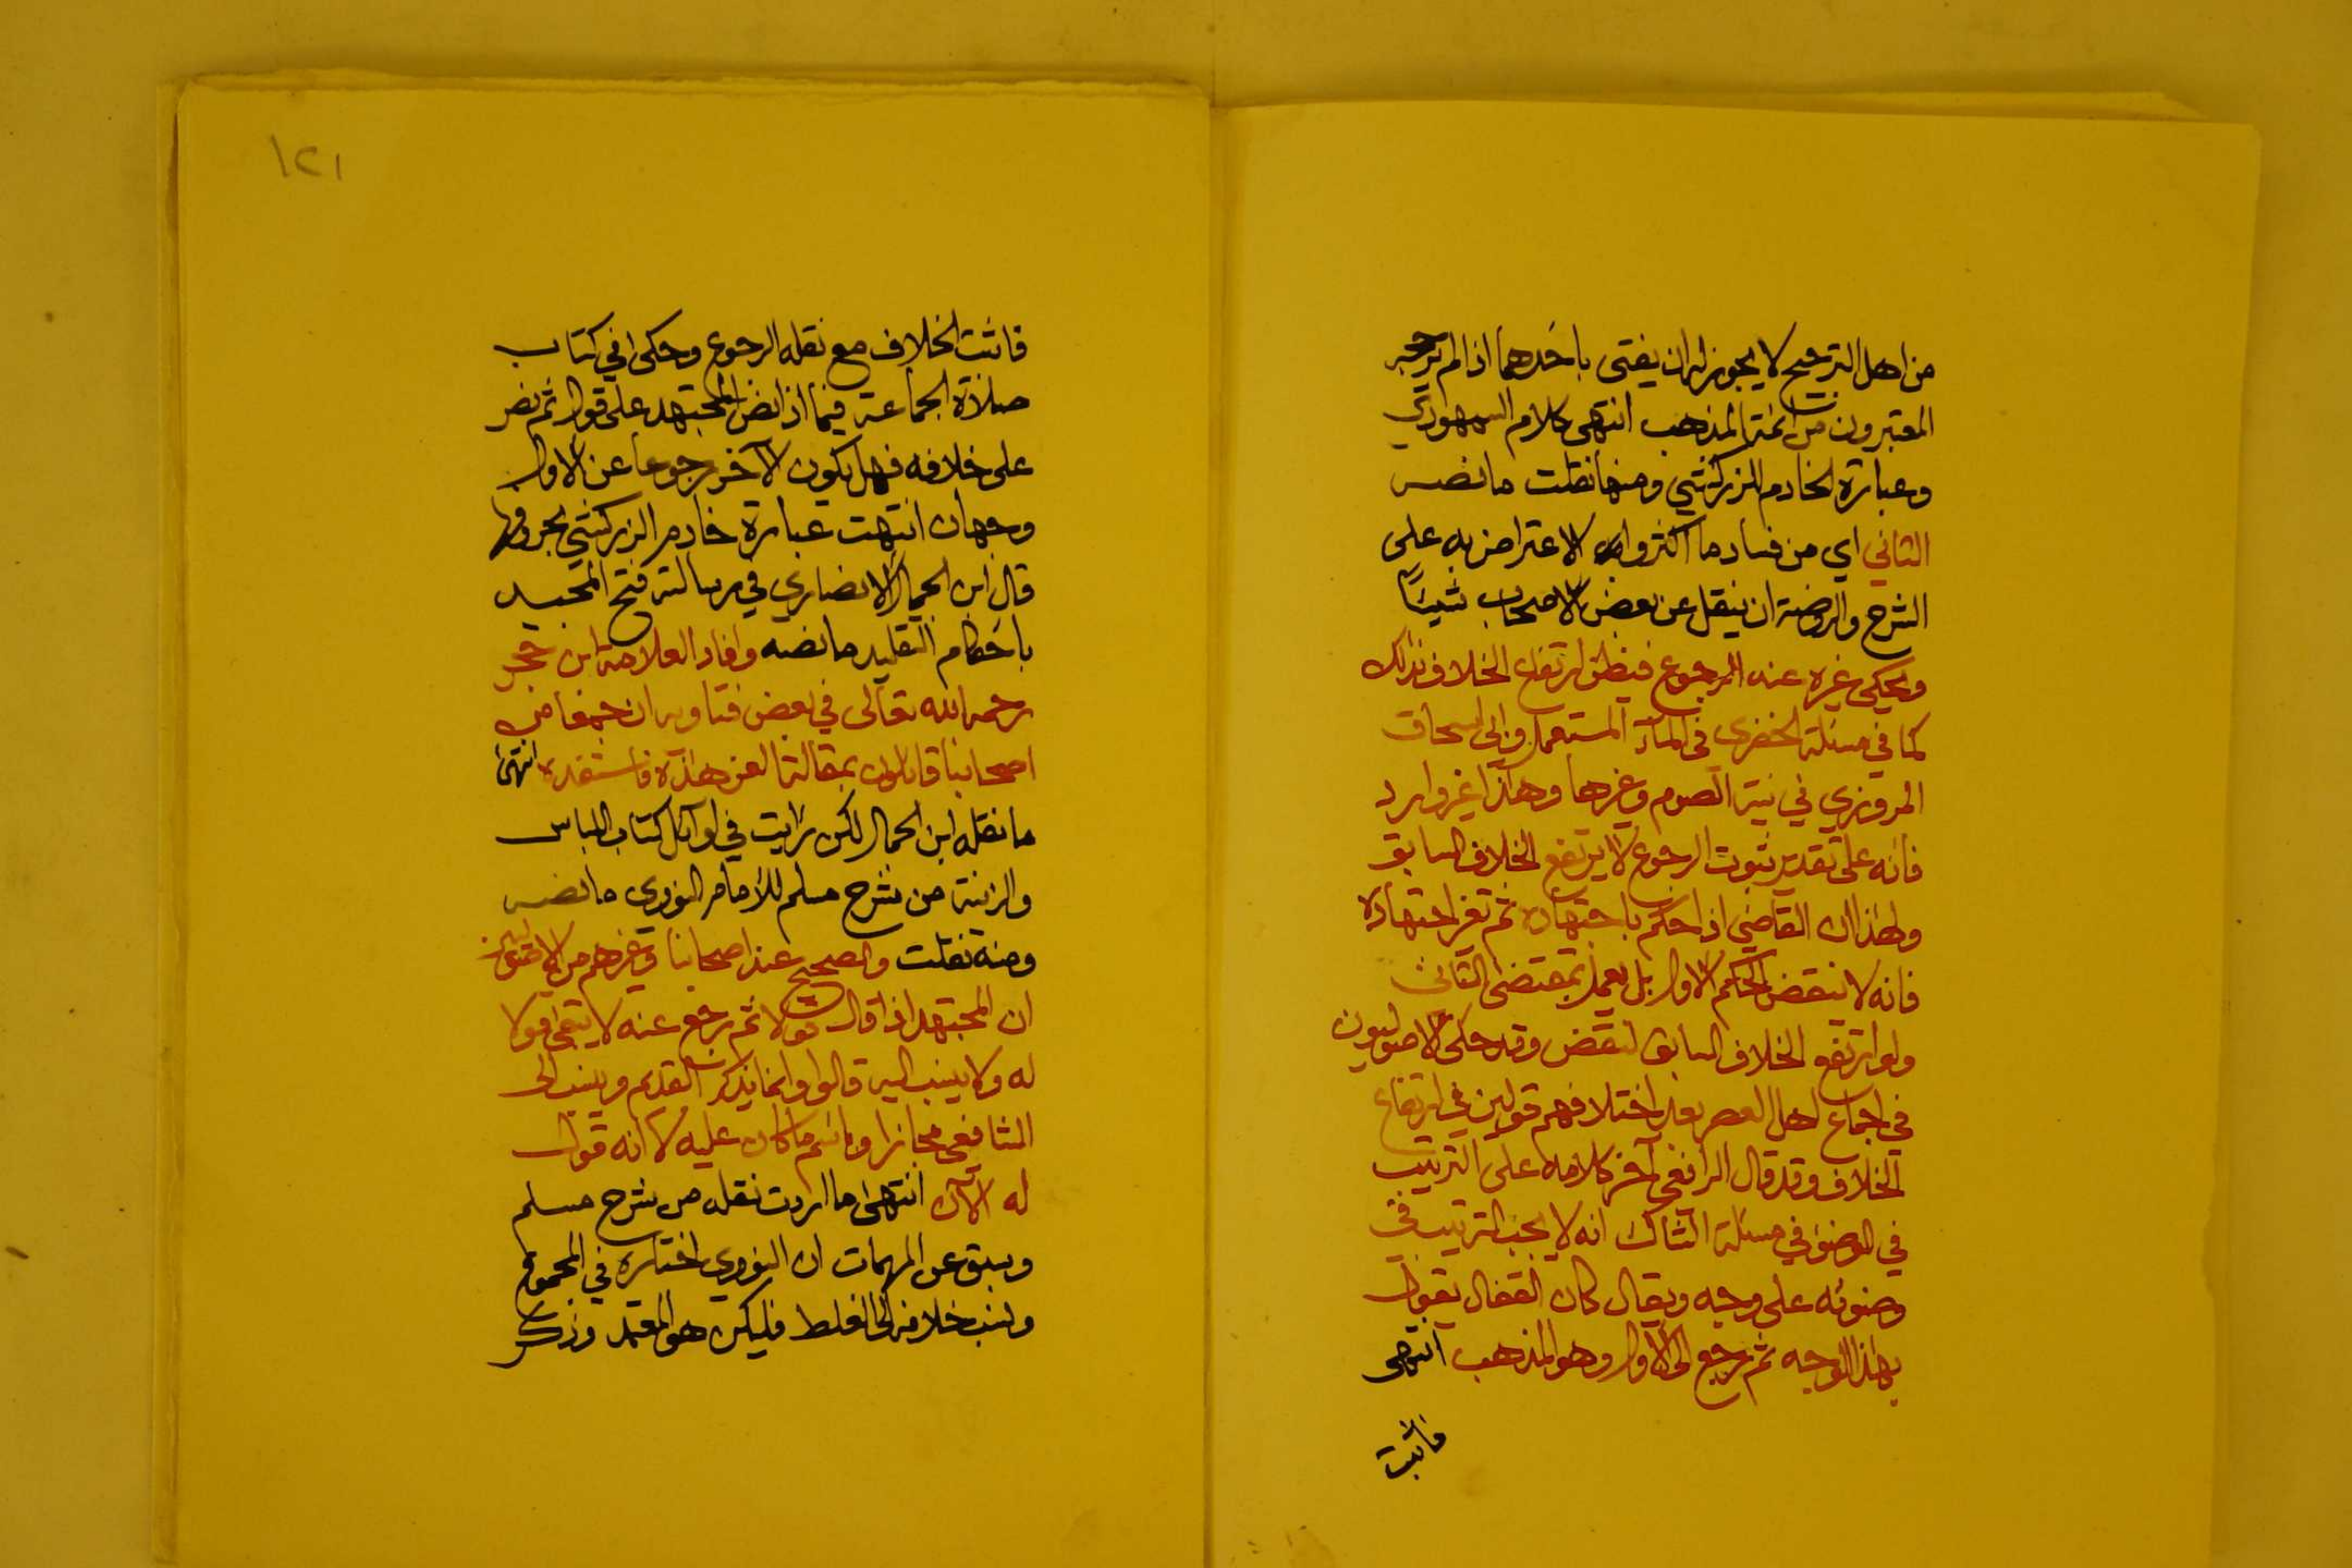 من اهل الترجيح لا يجوز له ان يفتى باحدهما اذا لم يرجحه
المعتبرون من ائمة المذهب انتهى كلام السمهودي
وعبارة الخادم للزركشي ومنها نقلت ما نصه
الثاني اي من فساد ما اكثروا به الاعتراض به على
الشرح والروضة ان ينقل عن بعض الاصحاب شيئاً
ويحكى غيره عنه الرجوع فيظن ارتفاع الخلاف بذلك
كما في مسئلة الخضري في الماء المستعمل وابى اسحاق
المروزي في نية الصوم وغيرها وهذا غير وارد
فانه على تقدير ثبوت الرجوع لا يرتفع الخلاف السابق
ولهذا ان القاضي اذا حكم باجتهاده ثم تغير اجتهاده
فانه لا ينتقض الحكم الاول بل يعمل بمقتضى الثاني
ولو ارتفع الخلاف السابق لنقض وقد حكى الاصوليون
في اجماع اهل العصر بعد اختلافهم قولين في ارتفاع
الخلاف وقد قال الرافعي آخر كلامه على الترتيب
في الوضوء في مسئلة الشاك انه لا يجب الترتيب في
وضوئه على وجه ويقال كان القفال يقول
بهذا الوجه ثم رجع الى الاول وهو المذهب انتهى
فاثبت
١٢١
فاثبت الخلاف مع نقله الرجوع وحكى في كتاب
صلاة الجماعة فيما اذا نص المجتهد على قول ثم نص
على خلافه فهل يكون الآخر رجوعا عن الاول
وجهان انتهت عبارة خادم الزركشي بحروفها
قال ابن الجمال الانصاري في رسالته فتح المجيد
باحكام التقليد ما نصه وافاد العلامة ابن حجر
رحمه الله تعالى في بعض فتاويه ان جمعا من
اصحابنا قائلون بمقالة الغز هذه فاستفده انتهى
ما نقله ابن الجمال لكن رايت في اوائل كتاب اللباس
والزينة من شرح مسلم للامام النووى ما نصه
ومنه نقلت والصحيح عند اصحابنا وغيرهم من الاصوليين
ان المجتهد اذا قال قولا ثم رجع عنه لا يبقى قولا
له ولا ينسب اليه قالوا وانما يذكر القديم وينسب الى
الشافعي مجازا وباسم ما كان عليه لا انه قول
له الآن انتهى ما اردت نقله من شرح مسلم
وسبق عن المهمات ان النووي اختاره في المجموع
ونسب خلافه الى الغلط فليكن هو المعتمد وذكر